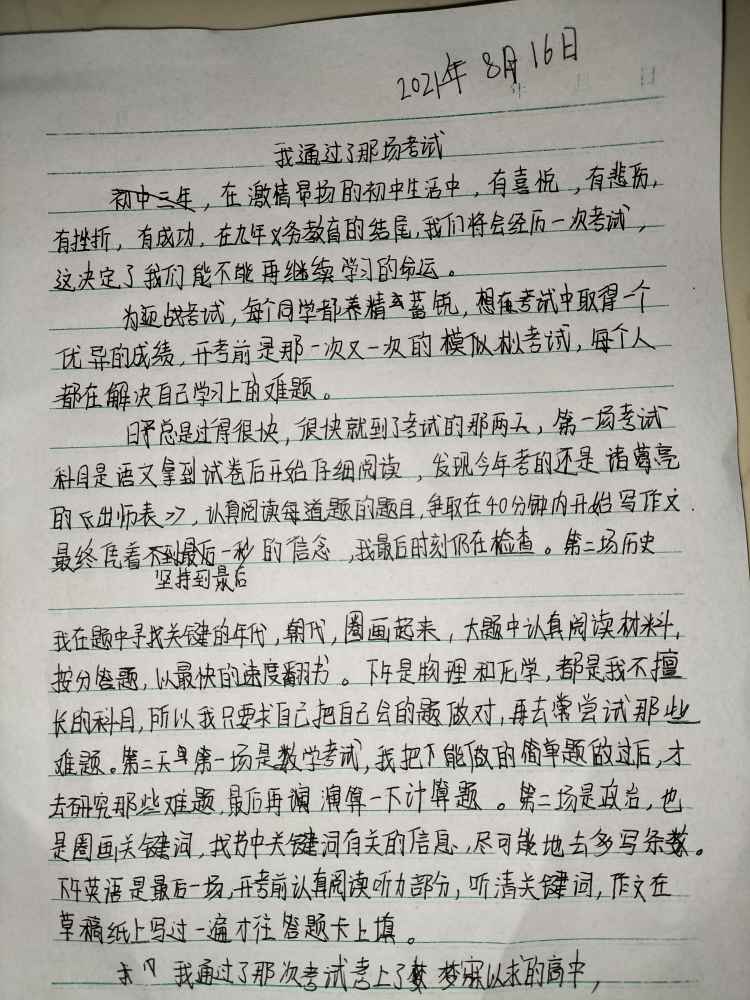 2021年 8月 16日
我通过了那场考试
初中三年，在激情昂扬的初中生活中，有喜悦，有悲伤，
有挫折，有成功，在九年义务教育的结尾，我们将会经历一次考试，
这决定了我们能不能再继续学习的命运。
为迎战考试，每个同学都养精蓄锐，想在考试中取得一个
优异的成绩，开考前是那一次又一次的模拟考试，每个人
都在解决自己学习上的难题。
总是过得很快，很快就到了考试的那两天，第一场考试
科目是语文拿到试卷后开始仔细阅读，发现今年考的还是诸葛亮
的《出师表》，认真阅读每道题的题目，争取在40分钟内开始写作文.
最终凭着不到最后一秒的信念，我最后时刻仍在检查。第二场历史
坚持到最后
我在题中寻找关键的年代，朝代，圈画起来，大题中认真阅读材料，
按分答题，以最快的速度翻书。下午是物理和化学，都是我不擅
长的科目，所以我只要求自己把自己会的题做对，再去尝试那些
难题。第二天第一场是数学考试，我把下能做的简单题做过后，才
去研究那些难题，最后再演算一下计算题。第二场是政治，也
是圈画关键词，找书中关键词有关的信息，尽可能地去多写条数。
下午英语是最后一场，开考前认真阅读听力部分，听清关键词，作文在
草稿纸上写过一遍才往答题卡上填。
我通过了那次考试考上了梦寐以求的高中，